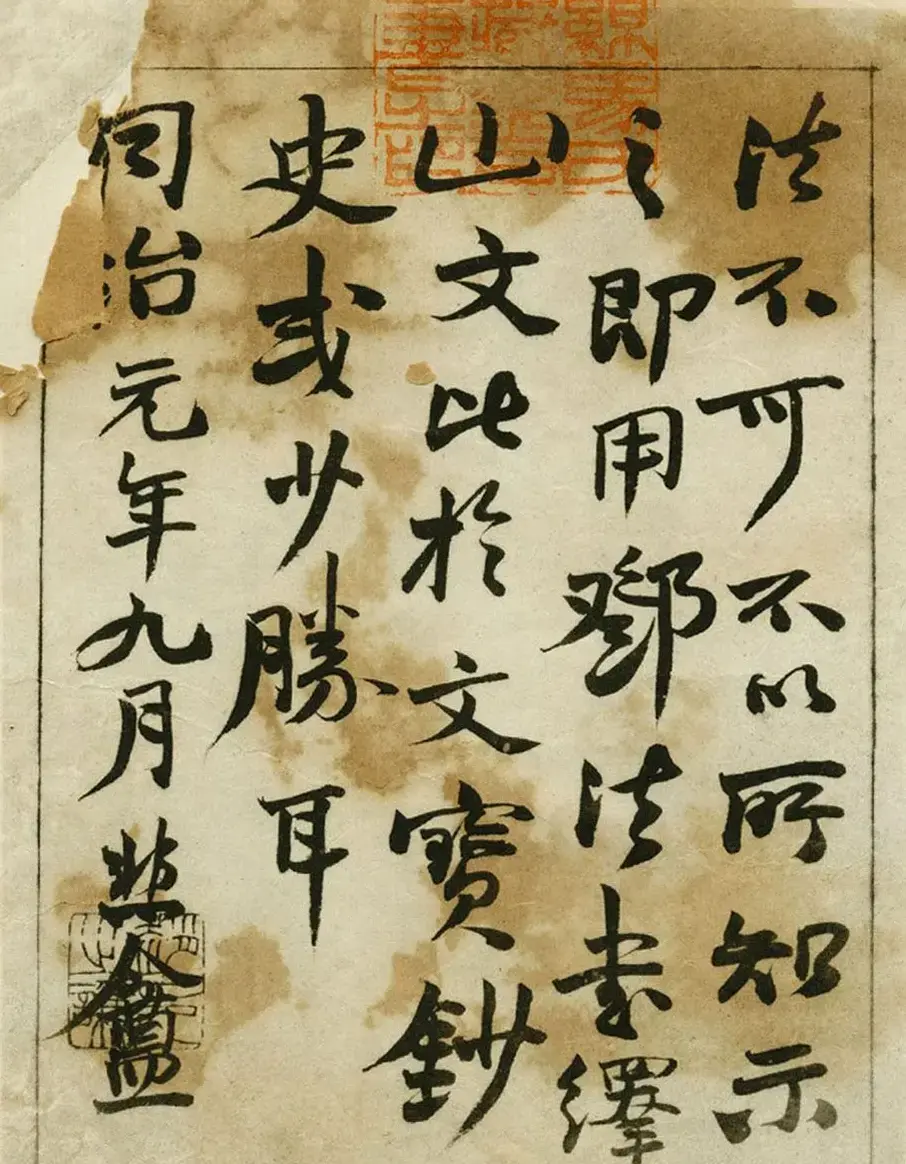 法不可不以所知示
之即用鄧法書繹
山文比於文寶鈔
史或少勝耳
同治元年九月悲盦